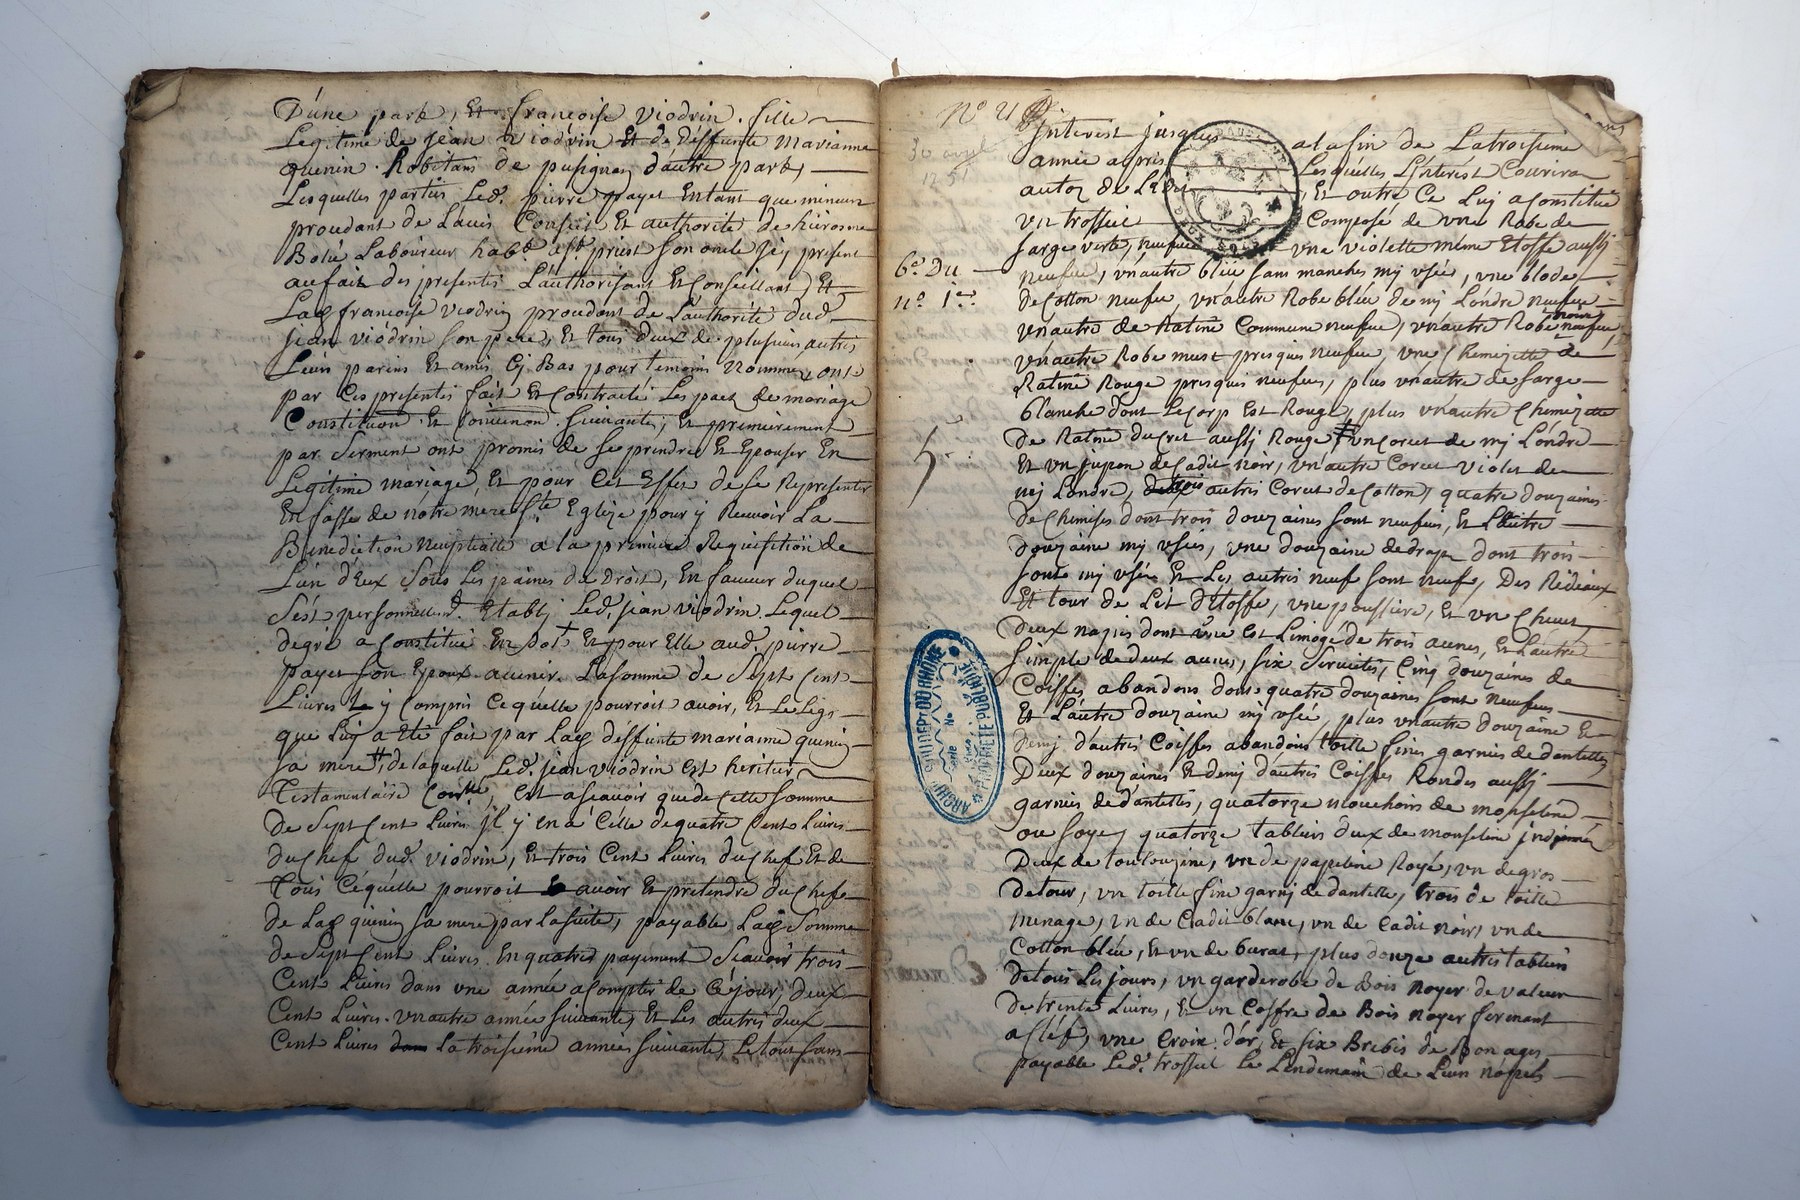 D'une part, Et françoise viodrin. fille
Legitime de jean viodrin Et de Deffunte Marianne
quenin. Habitans de pusignan d'autre part,
Lesquelles parties Led. pierre payet Entant que mineur
procedant de Lavis Conseil Et authorité de hierosme
Botié Laboureur habt. aud. priest son oncle jcy present
aufait des presentes L'authorisant Et Conseillant, Et
Lad. françoise viodrin procedant de L'authorité dud.
jean viodrin son pere, Et tous d'eux de plusieurs autres
Leurs parens Et amis Cy Bas pour temoins Nommez, ont
par Ces presentes fait Et Contracté Les pact de mariage
Constitution Et Convention suivantes, Et premierement
par Serment ont promis de se prendre Et Epouser En
Legitime mariage, Et pour Cet Effet de se Representer
En fasse de nôtre mere Ste. Eglize pour y Recevoir La
Benediction Neuptialle a la premiere Requisition de
L'un d'Eux sous Les peines de Droit, En faveur duquel
s'est personnellemt. Etably Led. jean viodrin Lequel
degré a Constitué En Dot Et pour Elle aud. pierre
payet son Epoux avenir. La somme de Sept Cent
Livres y Compris Ce qu'elle pourroit avoir, Et Le Legs
que Luy a Eté fait par Lad. deffunte marianne quenin
sa mere, de laquelle Led. jean viodrin Est heritier
Testamentaire, Est ascavoir que de Cette somme
De Sept Cent Livres jl y En a Celle de quatre Cent Livres
du Chef dud. viodrin, Et trois Cent Livres du Chef Et de
Tous Ce qu'elle pourroit avoir Et pretendre du Chef
de Lad. quenin sa mere par La suite, payable Lad. Somme
de Sept Cent Livres En quatres payement Scavoir trois
Cent Livres dans une année a Compter de Ce jour, deux
Cent Livres. un autre année suivante, Et Les autres deux
Cent Livres la troisieme année suivante, Le tout sans
No
30 avril
1751
Interest jusques a la fin de La troisieme
année apres Lesquelles L'interest Courira
autoz de L'Edit, Et outre Ce Luy a Constitué
un trossel Composé de une Robe de
sarge verte, neufve une violette même Etoffe aussy
6e. Du
no. 1er.
neufve, un autre bleüe sans manches my usée, une blode
de Cotton neufve, un autre Robe bleüe de my Londre neufve
un autre de Ratine Commune neufve, un autre Robe noire neufve,
un autre Robe musc presques neufve, une Chemizette de
Ratine Rouge presques neufves, plus un autre de sarge
blanche dont Le Corp Est Rouge, plus un autre Chemizette
De Ratine du Cret aussy Rouge, un Corcet de my Londre
5
Et un jupon de Cadit noir, un autre Corcet violet de
my Londre, trois autres Corcet de Cotton, quatre douzaines
De Chemises dont trois douzaines sont neufves, Et L'autre
douzaine my usées, une douzaine de drap dont trois
sont my usée Et Les autres neuf sont neufs, Des Rideaux
Et tour de Lit d'Etoffe, une poussiere, Et un Chevet
Deux napes dont une Est Limogé de trois aunes, Et L'autre
simple de deux aunes, six serviettes, Cinq douzaines de
Coiffes abandons dont quatre douzaines sont neufves
Et L'autre douzaine my usée, plus un autre douzaine Et
Demy d'autres Coiffes abandons toille fines garnies de dantelles
Deux douzaines Et demy d'autres Coiffes Rondes aussy
garnies de dantelles, quatorze mouchoirs de mouseline
ou soye, quatorze tabliers deux de mouseline jndienne
Deux de toulouzine, un de papeline Rayé, un de gros
de tour, un toille fine garny de dantelle, trois de toille
menage, un de Cadit blanc, un de Cadit noir, un de
Cotton bleüe, Et un de burat, plus douze autres tabliers
de tous Les jours, un garderobe de Bois Noyer de valeur
de trente Livres, Et un Coffre de Bois Noyer fermant
a Clef, une Croix d'or, Et six Brebis de Bon ages
payable Led. trossel Le Lendemain de Leurs Nôpces
ARCHIVES DU DEPT DU RHÔNE
PROPRIETE PUBLIQUE